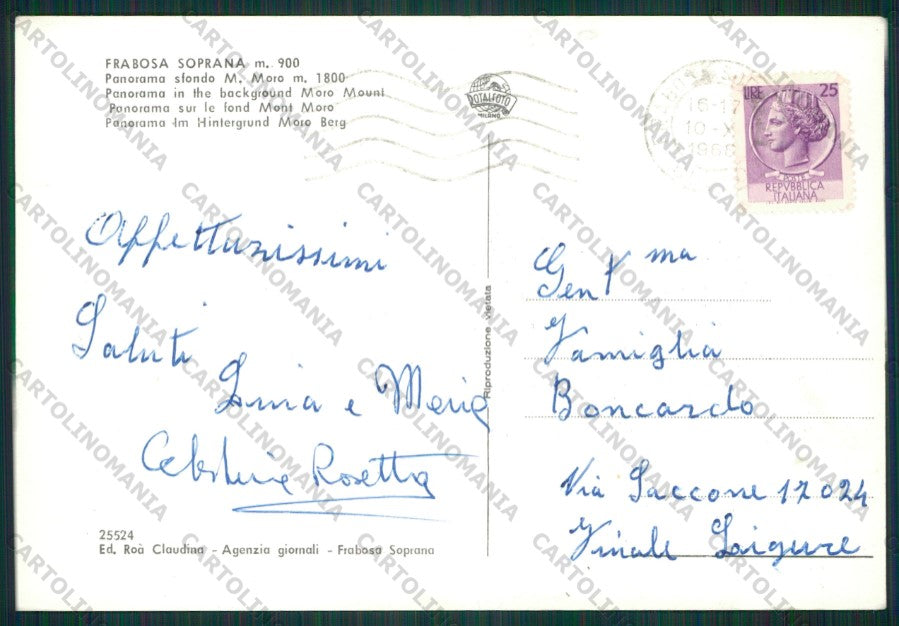 FRABOSA SOPRANA m. 900
Panorama sfondo M. Moro m. 1800
Panorama in the background Moro Mount
Panorama sur le fond Mont Moro
Panorama Im Hintergrund Moro Berg
TOTALFOTO
MILANO
16-17
10-X
1966
LIRE 25
POSTE
REPVBBLICA
ITALIANA
Affettuzissimi
Saluti
Lina e Maria
Celestina Rosetta
25524
Ed. Roà Claudina - Agenzia giornali - Frabosa Soprana
Riproduzione vietata
Gen ma
Famiglia
Boncardo
Via Saccone 17024
Finale Ligure
CARTOLINOMANIA